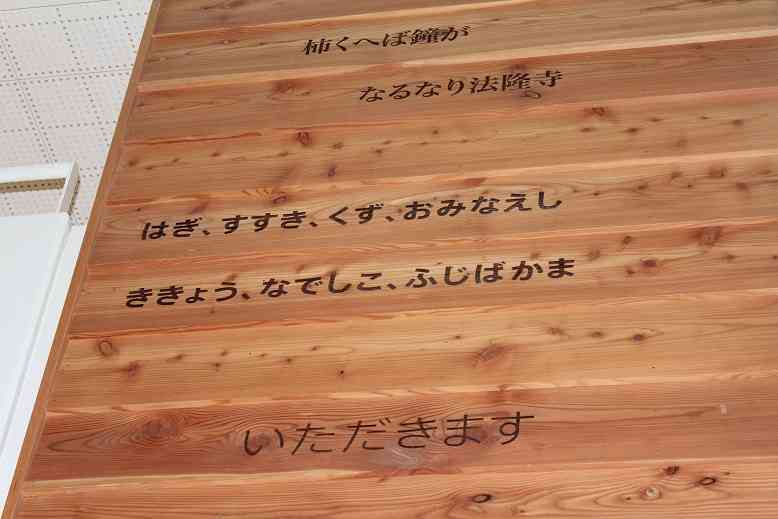 柿くへば鐘が
なるなり法隆寺
はぎ、すすき、くず、おみなえし
ききょう、なでしこ、ふじばかま
いただきます